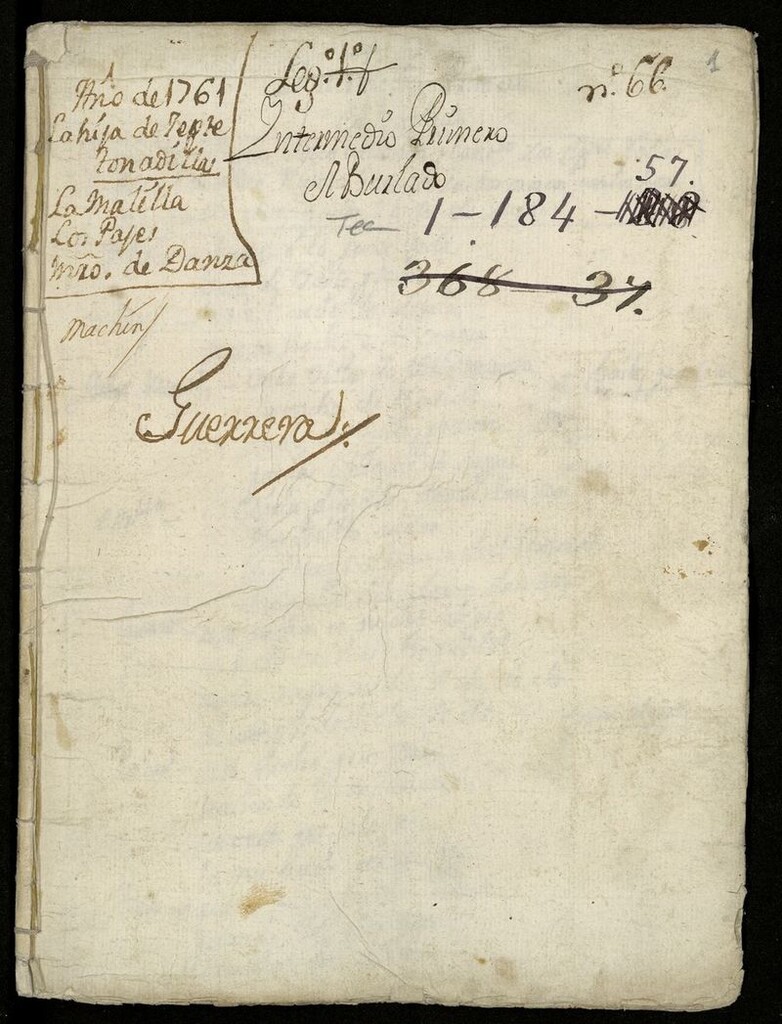 Año de 1761
La hija de Jepte
tonadillas
La Malilla
Los Pajes
Mr̃o. de Danza
Machin
Leg.º 1.º
n.º 66
1
Intermedio Primero
El Burlado
57.
Tea 1-184-
368 37.
Guerrero